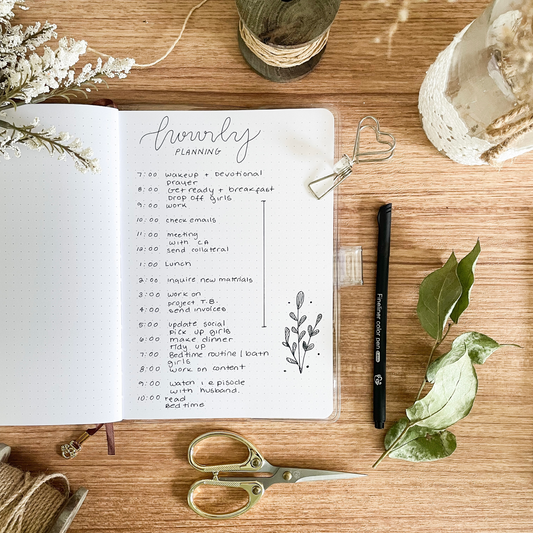 hourly
PLANNING
7:00 wakeup + Devotional
prayer
8:00 Get ready + breakfast
Drop off girls
9:00 work
10:00 check emails
11:00 meeting
with CA
12:00 send collateral
1:00 Lunch
2:00 inquire new materials
3:00 work on
project T.B.
4:00 send invoices
5:00 update social
pick up girls
6:00 make dinner
tidy up
7:00 Bedtime routine / bath
girls
8:00 work on content
9:00 watch 1 episode
with husband.
10:00 read
Bedtime
Fineliner color pen